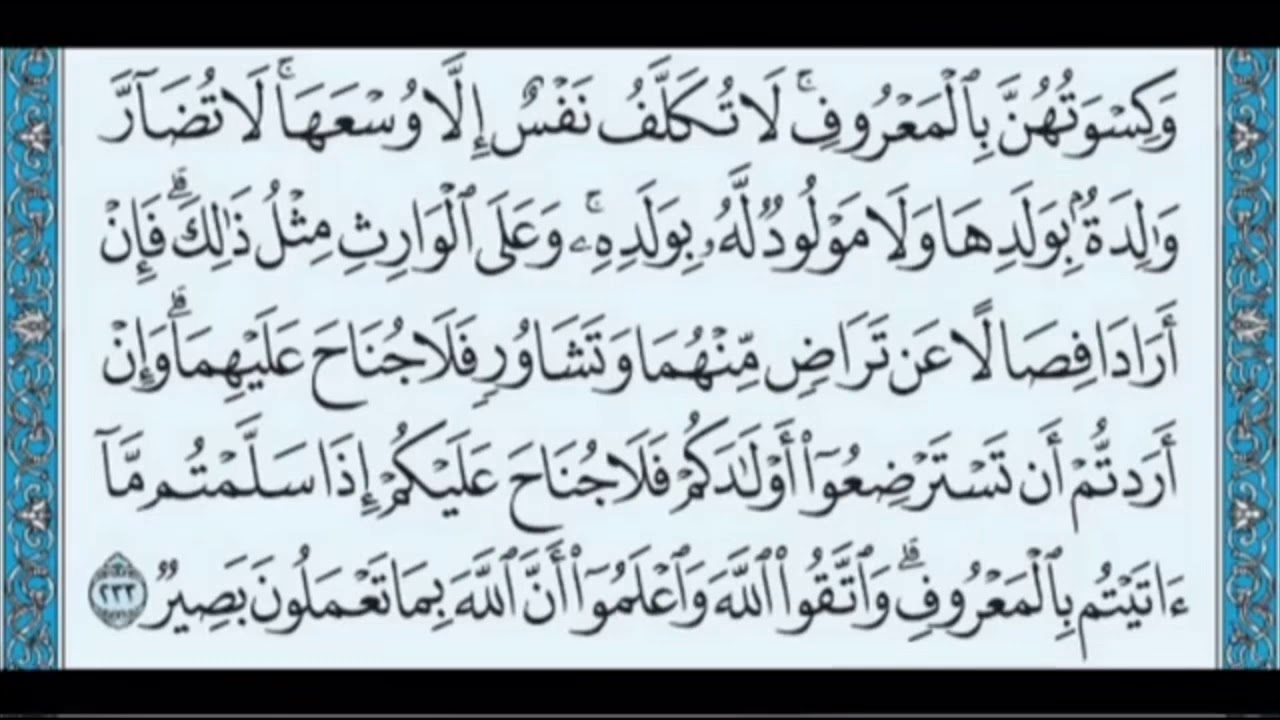 وَكِسۡوَتُهُنَّ بِٱلۡمَعۡرُوفِۚ لَا تُكَلَّفُ نَفۡسٌ إِلَّا وُسۡعَهَاۚ لَا تُضَآرَّ
وَٰلِدَةُۢ بِوَلَدِهَا وَلَا مَوۡلُودٞ لَّهُۥ بِوَلَدِهِۦۚ وَعَلَى ٱلۡوَارِثِ مِثۡلُ ذَٰلِكَۗ فَإِنۡ
أَرَادَا فِصَالًا عَن تَرَاضٖ مِّنۡهُمَا وَتَشَاوُرٖ فَلَا جُنَاحَ عَلَيۡهِمَاۗ وَإِنۡ
أَرَدتُّمۡ أَن تَسۡتَرۡضِعُوٓاْ أَوۡلَٰدَكُمۡ فَلَا جُنَاحَ عَلَيۡكُمۡ إِذَا سَلَّمۡتُم مَّآ
ءَاتَيۡتُم بِٱلۡمَعۡرُوفِۗ وَٱتَّقُواْ ٱللَّهَ وَٱعۡلَمُوٓاْ أَنَّ ٱللَّهَ بِمَا تَعۡمَلُونَ بَصِيرٞ ٢٣٣